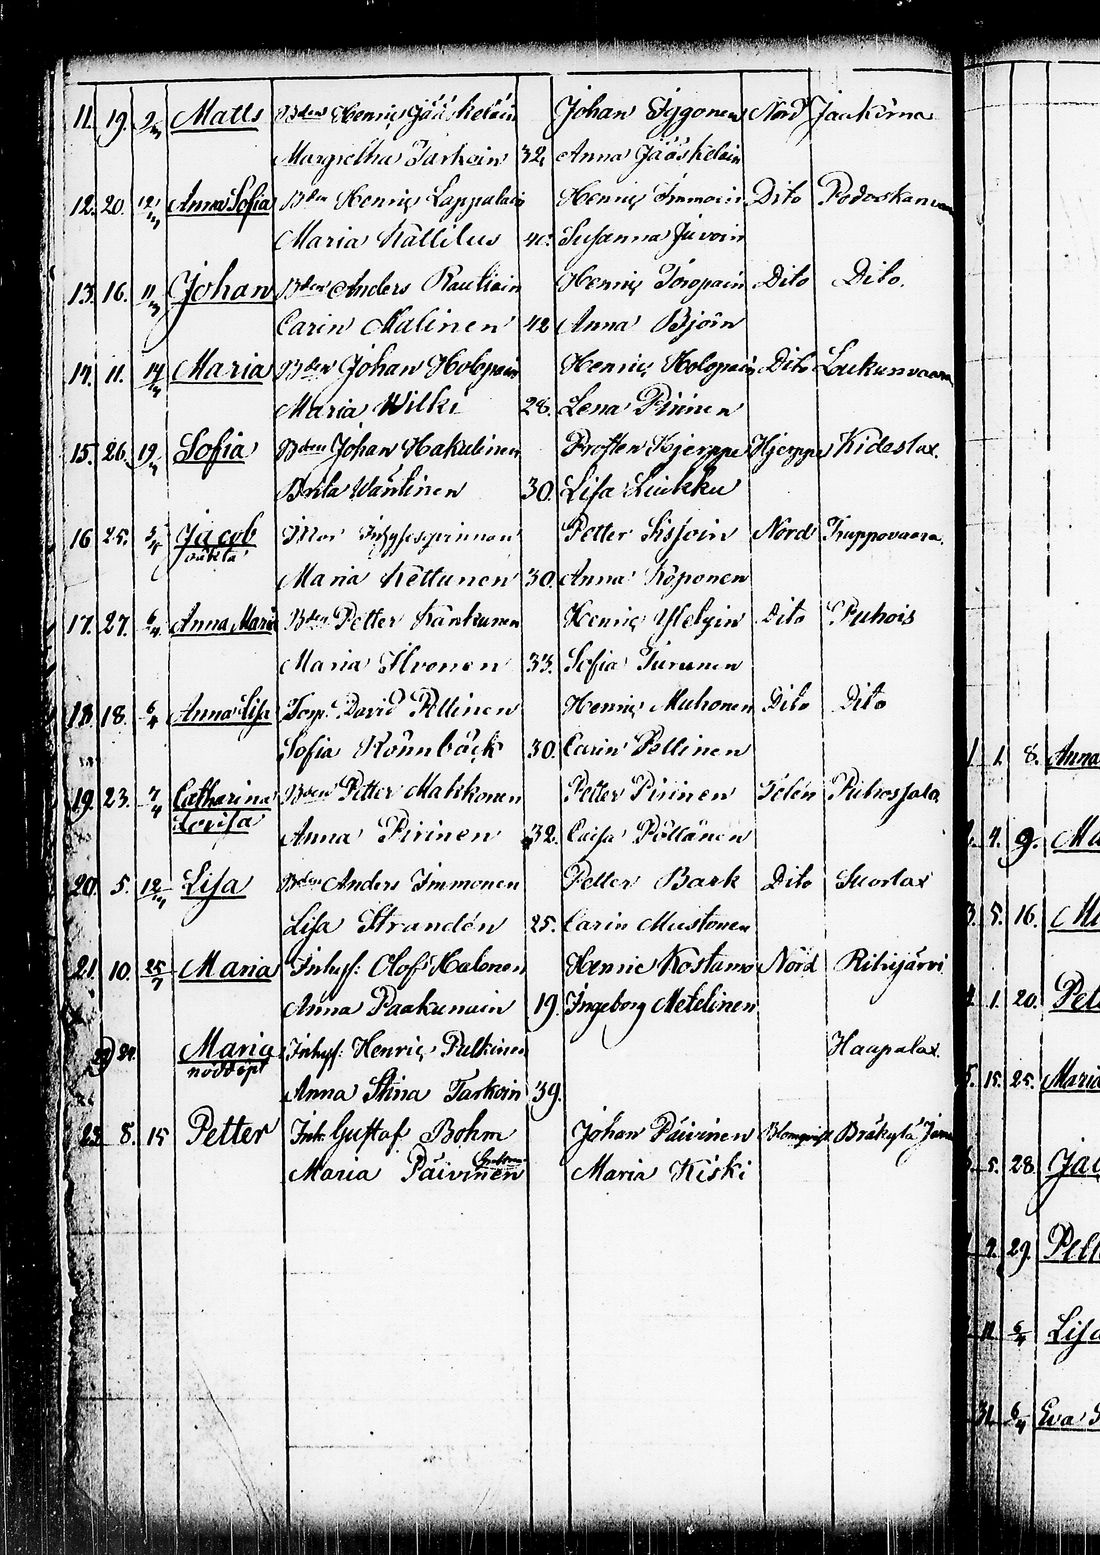 11. 19. 2/m Matts Bden Henric Jääskeläin Johan Tyggonen Nord Jaakärna
Margretha Tarkain 32, Anna Jääskelain
12. 20. 12/m Anna Sofia Bden Henric Lappalain Henric Immoin Dito Podoskanvaa
Maria Kättilus 40. Susanna Juvoin
13. 16. 11/m Johan Bden Anders Rautiain Henric Toropain Dito Dito.
Carin Malinen 42 Anna Björn
14. 11. 14/m Maria Bden Johan Holopain Henric Holopain Dito Loukunvaara
Maria Wilki 28. Lena Pirinen
15. 26. 19/m Sofia Bden Johan Hakulinen Prosten Hjerppe Hjerppe Kideslax.
Brita Wäntinen 30. Lisa Liukku
16 25. 5/4 Jacob oäkta Mor Inhyssespinnan Petter Sissoin Nord Truppovaara.
Maria Kettunen 30. Anna Köponen
17. 27. 6/4 Anna Maria Bden Petter Kankunen Henric Dito Puhois
Maria Ilvonen 33. Sofia Turunen
18. 18. 6/4 Anna Lisa Torp. David Pöllinen Henric Muhonen Dito Dito
Sofia Rönnbäck 30. Carin Pöllinen
19. 23. 7/4 Catharina Bden Petter Mahkonen Petter Pirinen Telén Puhossalo
Lovisa Anna Pirinen 32. Caisa Pöllänen
20. 5. 12/m Lisa Bden Anders Immonen Petter Bark Dito Suorlax
Lisa Strandén 25. Carin Mustonen
21. 10. 25/7 Maria Inhys: Olof Halonen Henric Kostamo Nord Riihijärvi
Anna Paakunain 19. Ingeborg Metelinen
22) 24. Maria Inhys: Henric Pulkinen Haapalax.
nöddöpt
Anna Stina Tarkoin 39.
23 8. 15 Petter Inh. Gustaf Bohm Johan Päivinen Blomqvist Bräkylä
Maria Päivinen Maria Kiski
1. 1. 8. Anna
4. 9. Ma
3. 5. 16. Ma
4. 1. 20. Pet
5. 15. 25. Maria
5. 28. Jac
2. 29. Pett
11. 6/4 Lisa
31. 6/4 Eva S